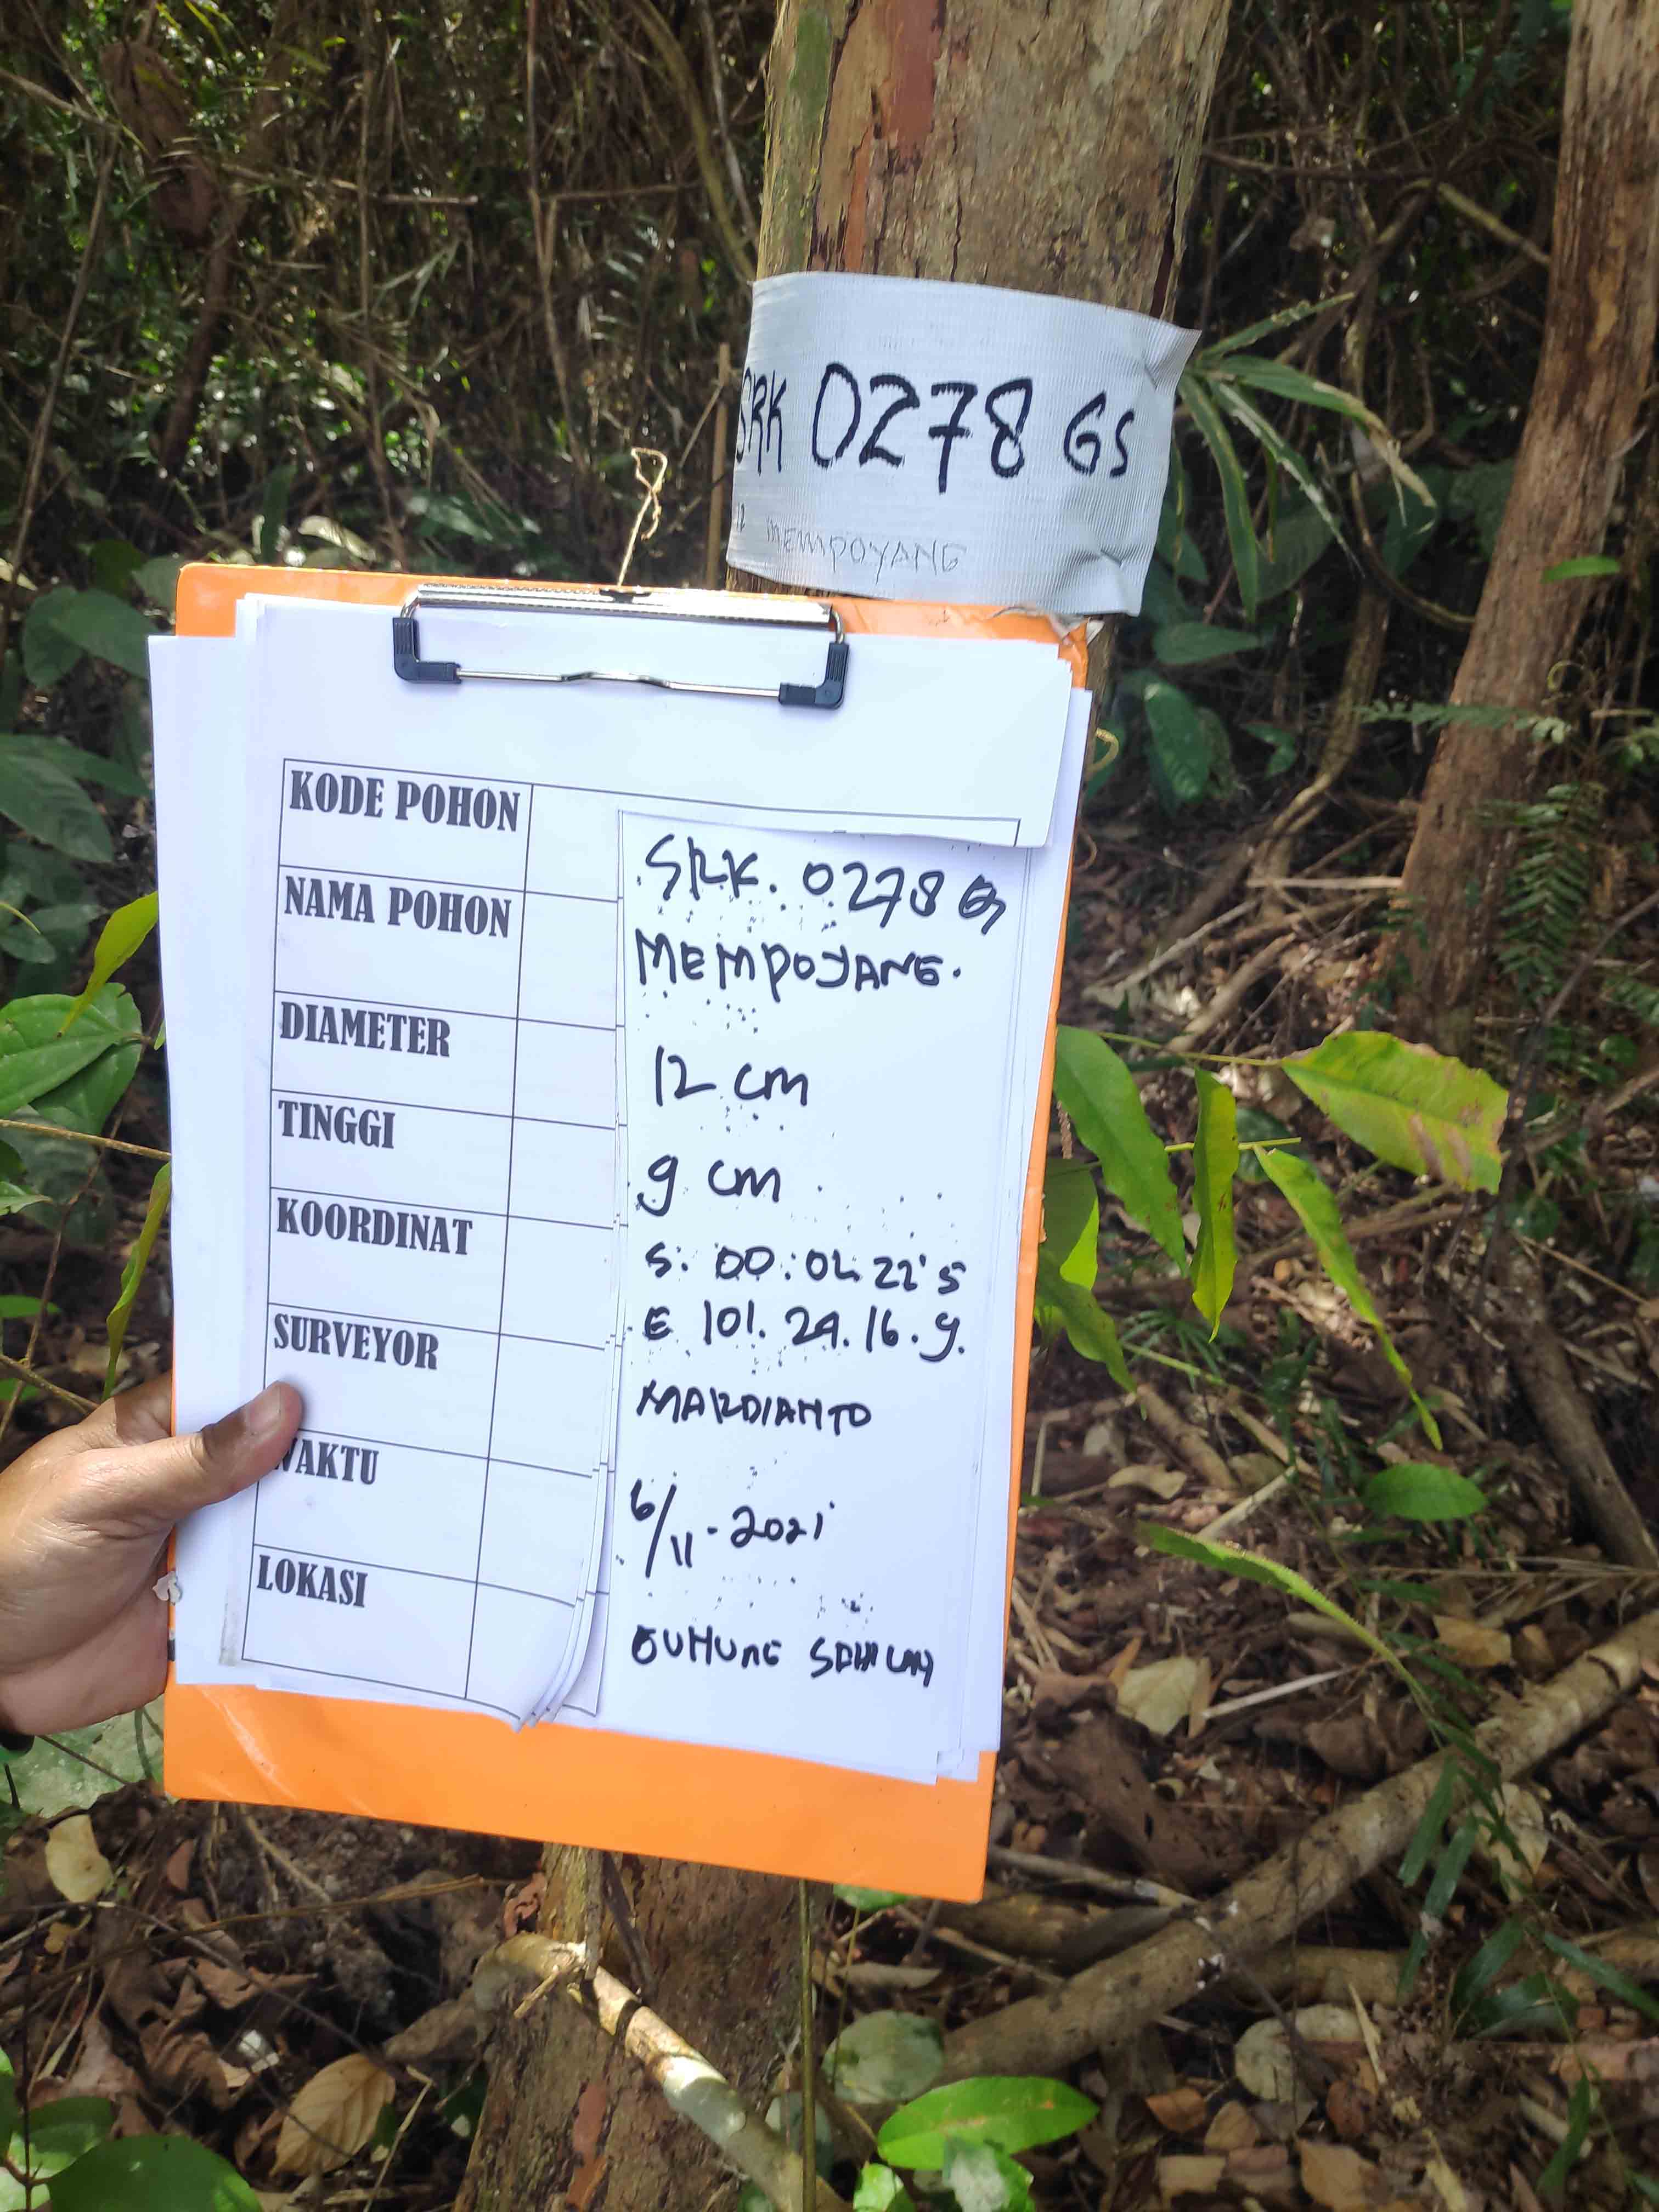 SRK 0278 GS
12 MEMPOYANG
KODE POHON SRK. 0278 GS
NAMA POHON MEMPOYANG.
DIAMETER 12 cm
TINGGI 9 cm
KOORDINAT S: 00:02 22'5
E 101. 29. 16. 9.
SURVEYOR MARDIANTO
WAKTU 6/11-2021
LOKASI GUNUNG SAHILAN